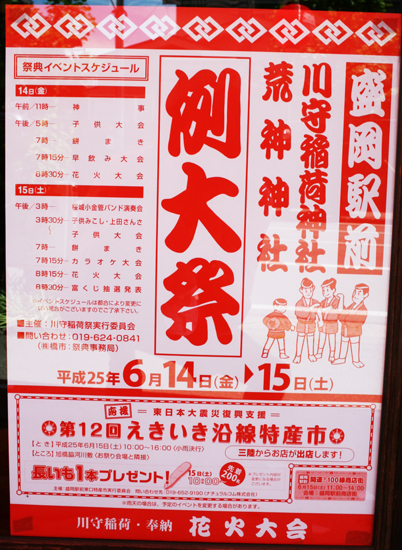 盛岡駅前
川守稲荷神社
荒神神社
例大祭
祭典イベントスケジュール
14日(金)
午前/11時ー神事
午後/5時ー子供大会
7時ー餅まき
7時15分ー早飲み大会
8時30分ー花火大会
15日(土)
午後/3時ー桜城小金管バンド演奏会
3時30分ー子供みこし・上田さんさ
子供大会
7時ー餅まき
7時15分ーカラオケ大会
8時15分ー花火大会
8時30分ー富くじ抽選発表
※イベントスケジュールは都合により変更に
なる場合がございますのでご了承下さい。
■主催:川守稲荷祭実行委員会
■問い合わせ:019-624-0841
(㈱橋市:祭典事務局)
平成25年6月14日(金)▶15日(土)
応援
=東日本大震災復興支援=
第12回えきいき沿線特産市
【とき】平成25年6月15日(土)10:00〜16:00(小雨決行)
【ところ】旭橋臨河川敷(お祭り会場と隣接)
三陸からお店が出店します!
長いも1本プレゼント!
15日(土)
10:00〜
先着
200名
主催:盛岡駅前東口特産市実行委員会 問い合わせ先:019-652-9180(ナチュラルコム株式会社)
※雨天の場合は、予定のイベントを変更する場合があります。
開運“100縁商店街
6月15日(土)11:00〜14:00
会場:盛岡駅前商店街
川守稲荷・奉納 花火大会